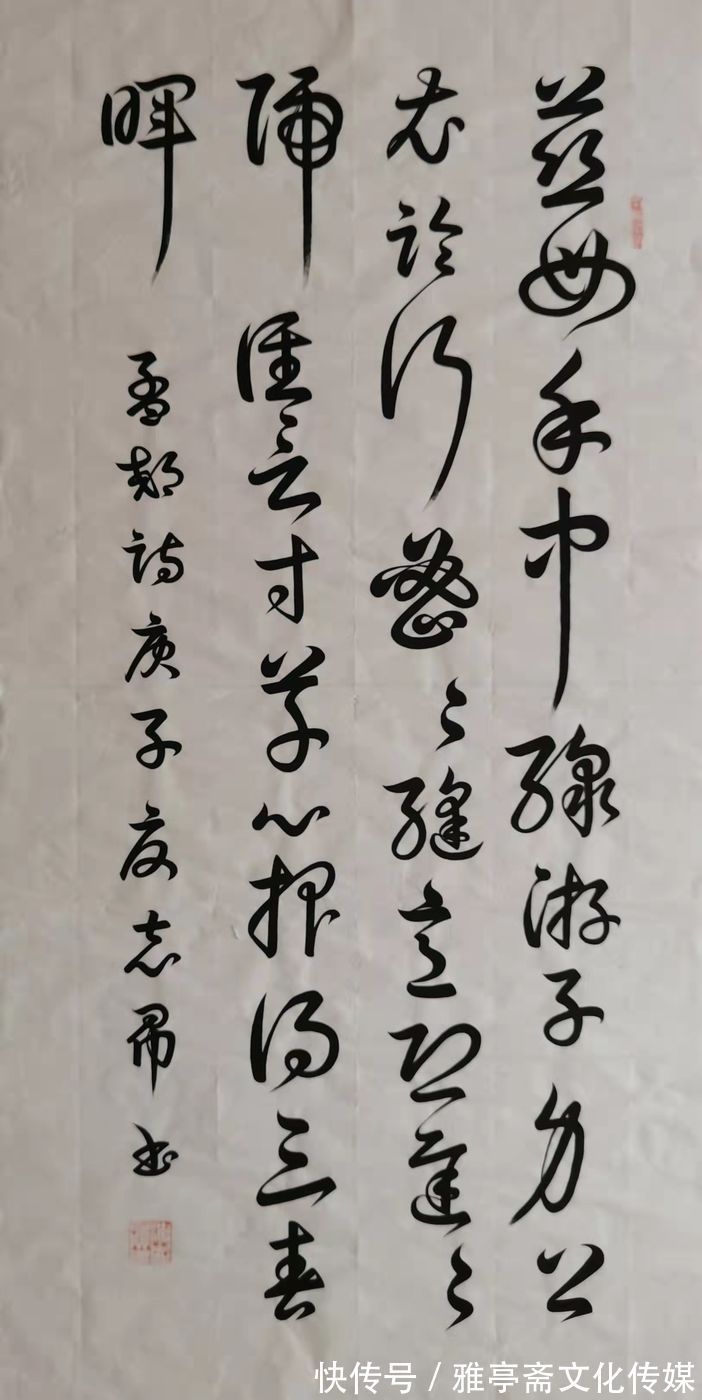 慈母手中線游子身上
衣臨行密々縫意恐遲々
歸誰言寸草心報得三春
暉
孟郊詩庚子夏志書
快传号 / 雅亭斋文化传媒